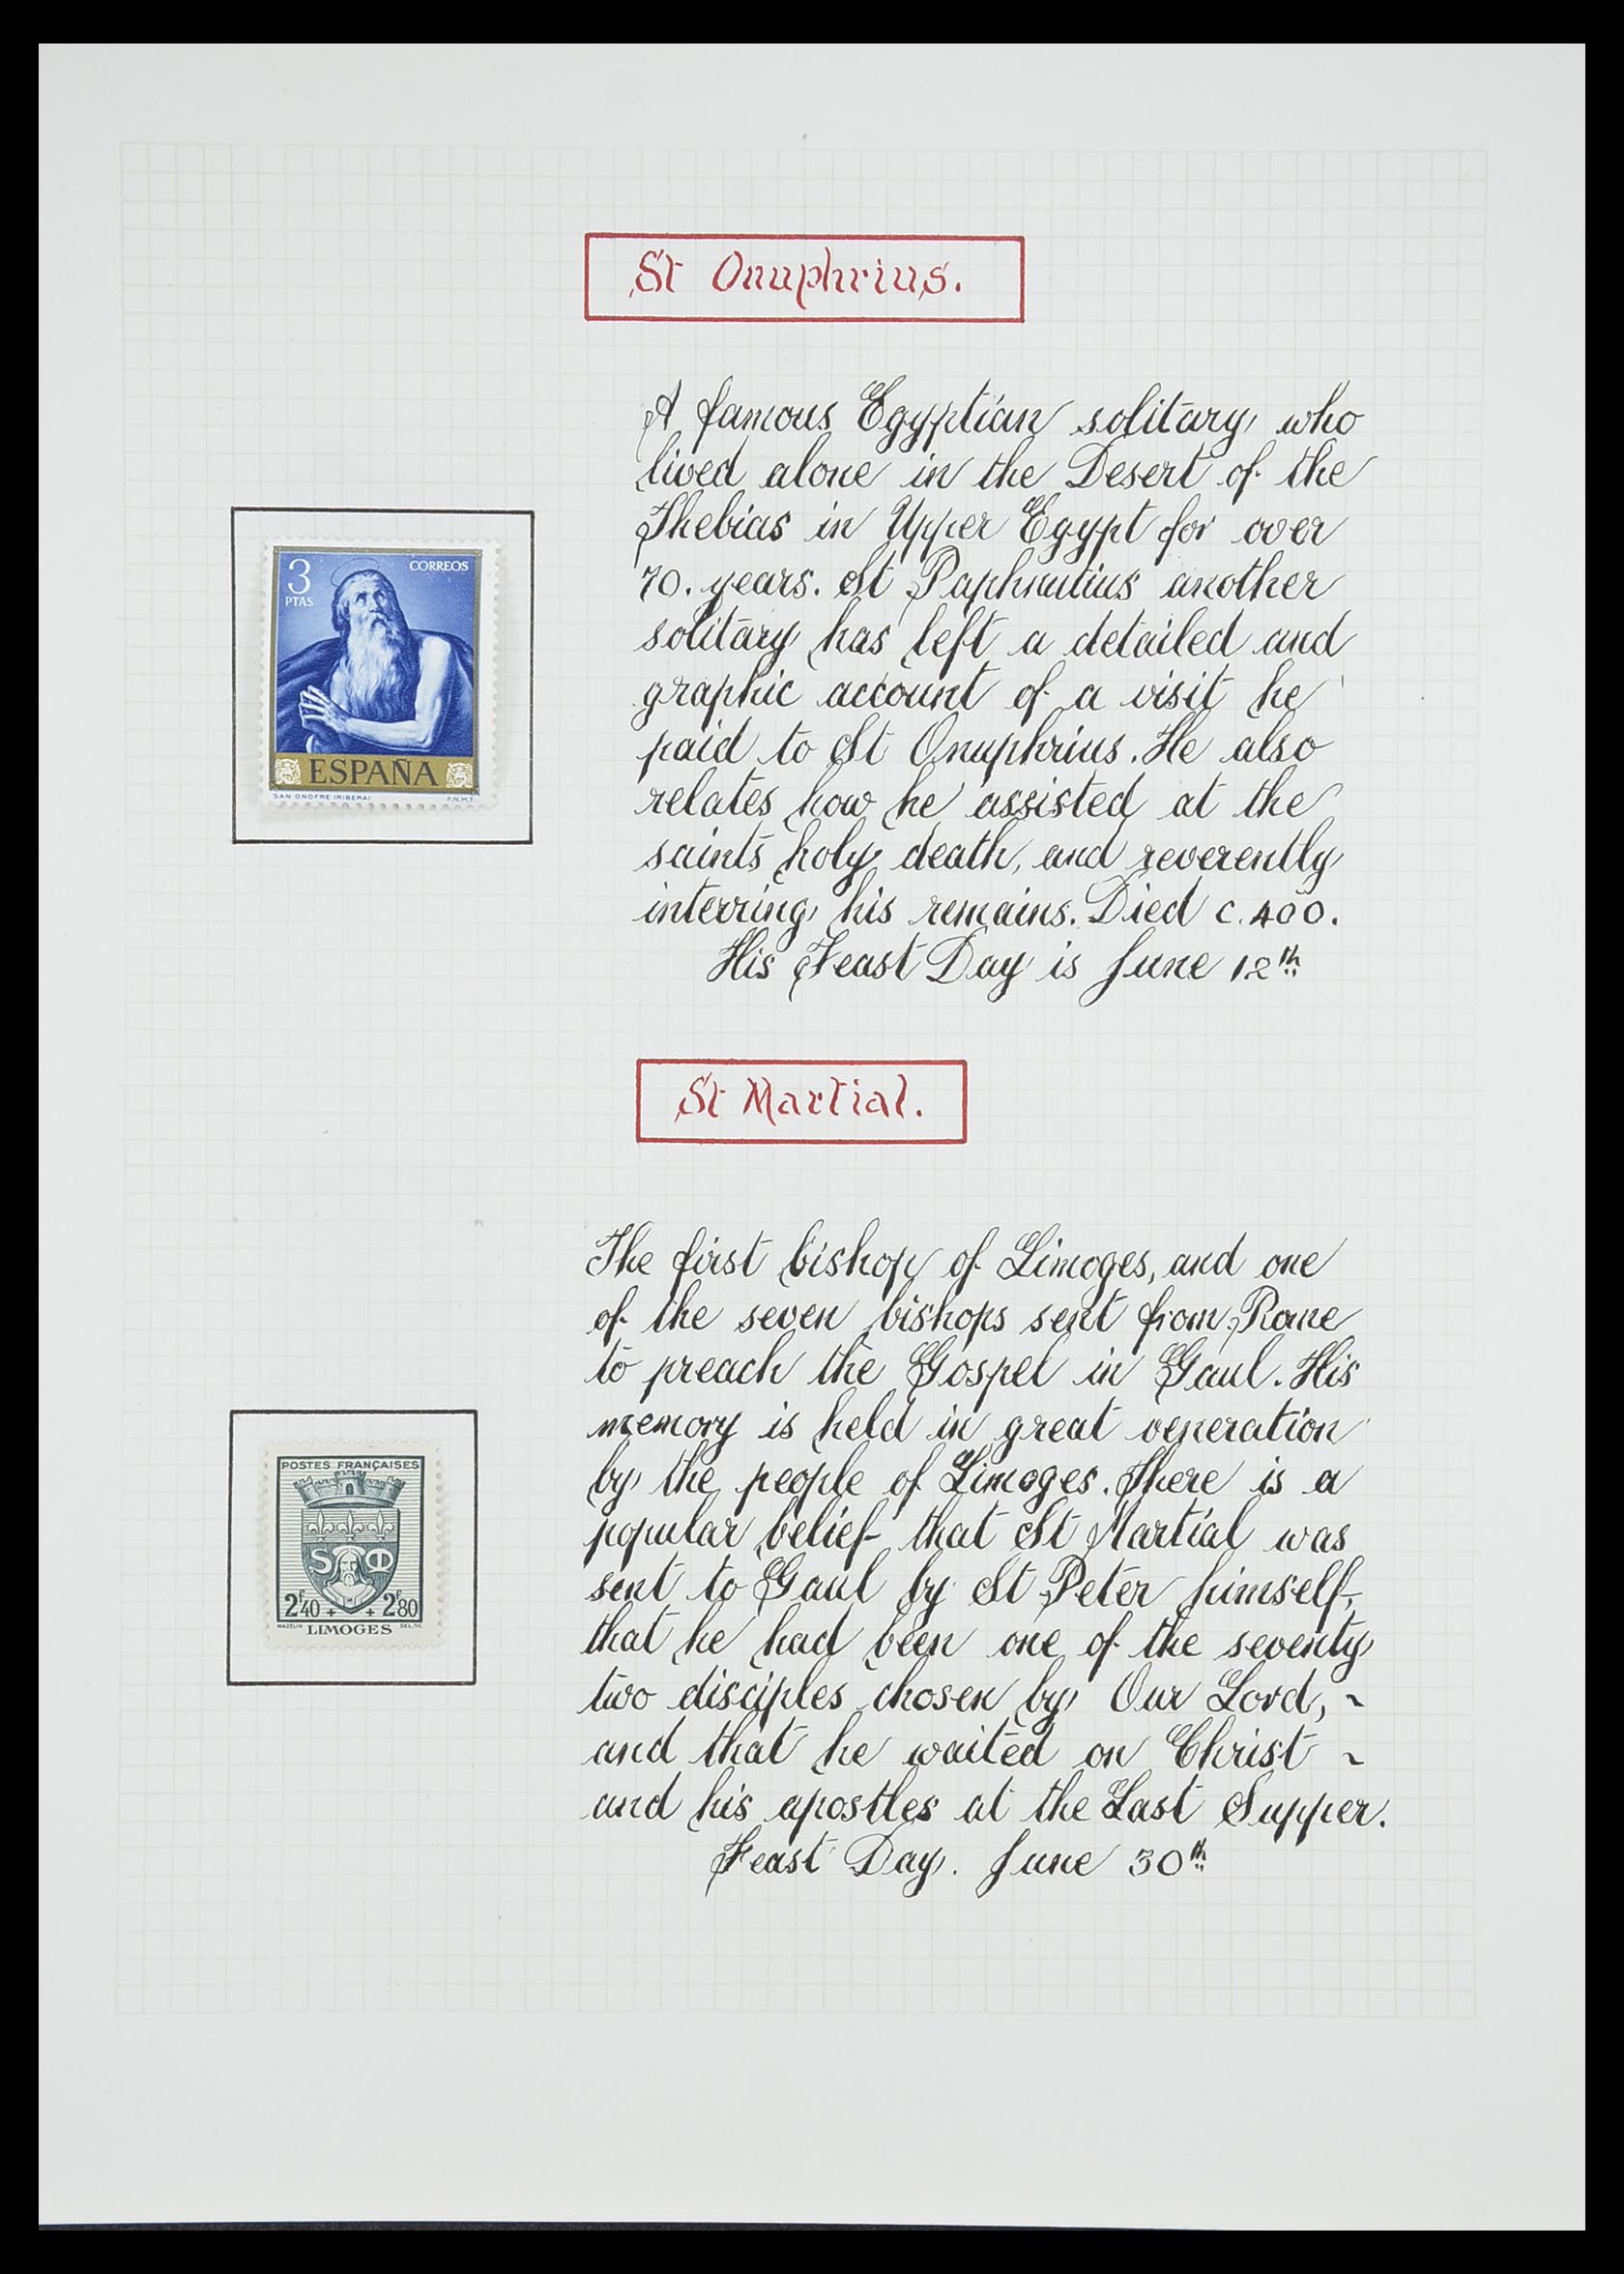 St Onuphrius.
A famous Egyptian solitary who
lived alone in the Desert of the
Thebias in Upper Egypt for over
70. years. St Paphnutius another
solitary has left a detailed and
graphic account of a visit he
paid to St Onuphrius. He also
relates how he assisted at the
saints holy death, and reverently
interring his remains. Died c. 400.
His Feast Day is June 12th
3
PTAS
CORREOS
ESPAÑA
SAN ONOFRE (RIBERA)
F.N.M.T.
St Martial.
The first bishop of Limoges, and one
of the seven bishops sent from Rome
to preach the Gospel in Gaul. His
memory is held in great veneration
by the people of Limoges. There is a
popular belief that St Martial was
sent to Gaul by St Peter himself,
that he had been one of the seventy
two disciples chosen by Our Lord, ~
and that he waited on Christ ~
and his apostles at the Last Supper.
Feast Day. June 30th
POSTES FRANÇAISES
S M
2f40 + + 2f80
MAZELIN LIMOGES DEL. SC.